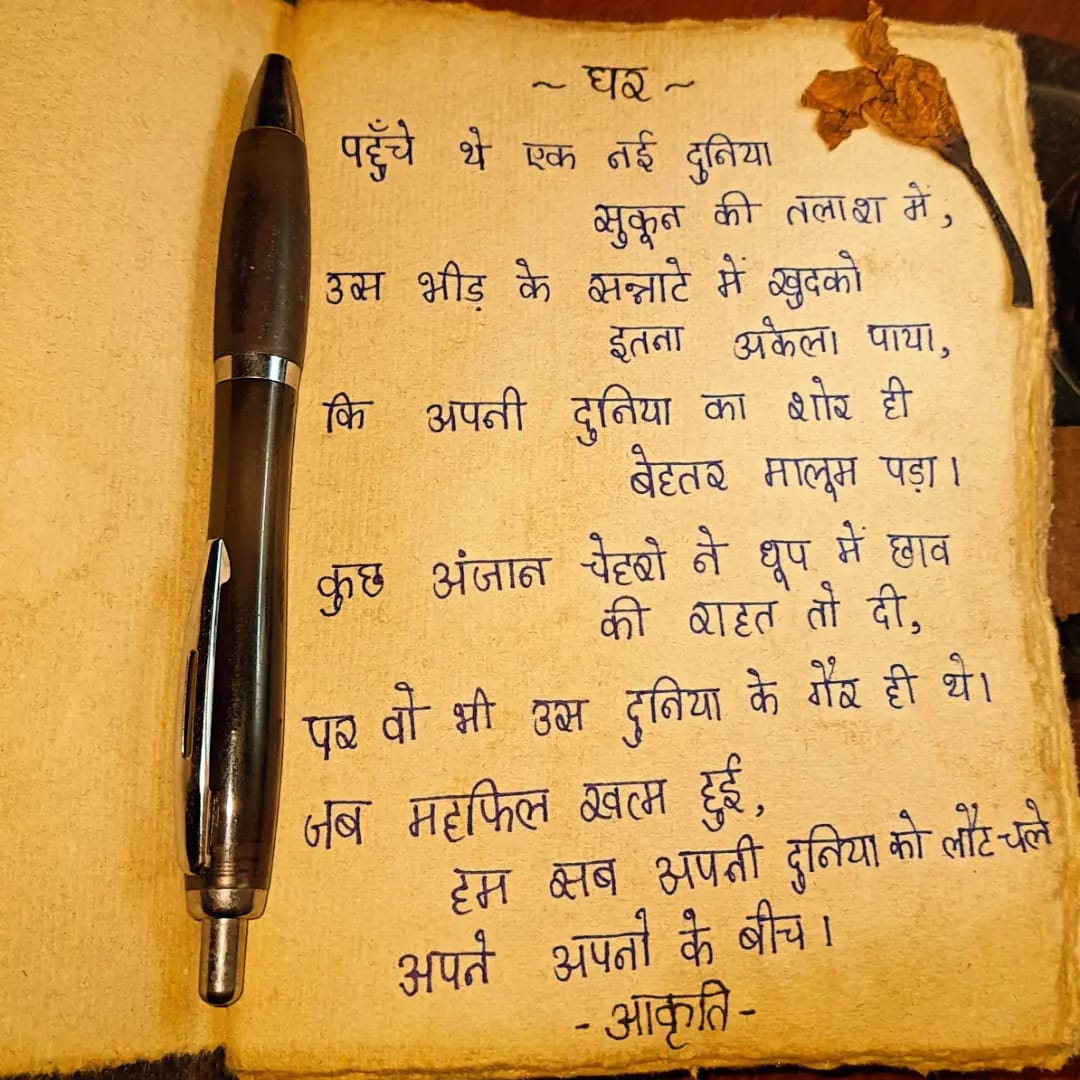 ~ घर ~
पहुँचे थे एक नई दुनिया
सुकून की तलाश में,
उस भीड़ के सन्नाटे में खुदको
इतना अकेला पाया,
कि अपनी दुनिया का शोर ही
बेहतर मालूम पड़ा।
कुछ अंजान चेहरो ने धूप में छाव
की राहत तो दी,
पर वो भी उस दुनिया के गैर ही थे।
जब महफिल खत्म हुई,
हम सब अपनी दुनिया को लौट चले
अपने अपनो के बीच।
- आकृति -